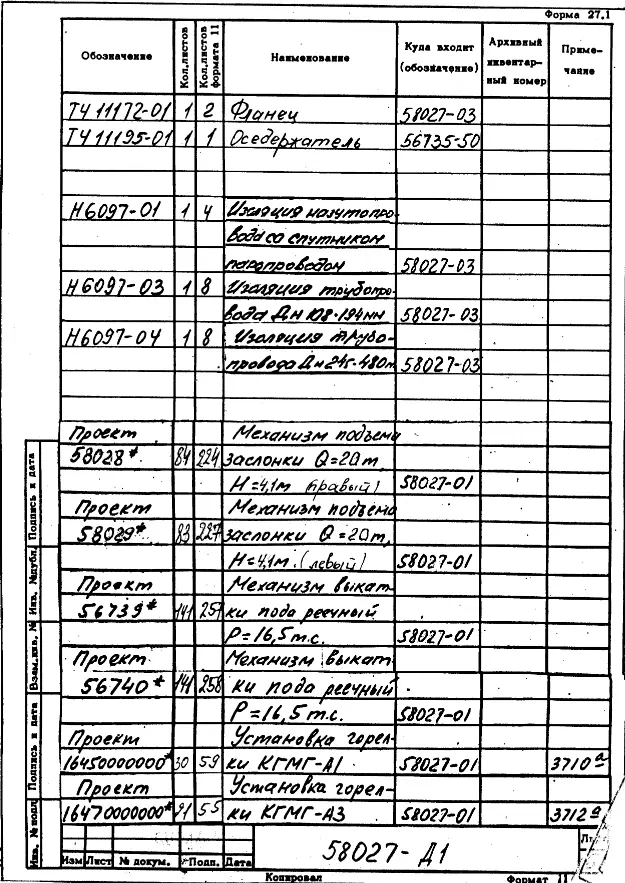 Форма 27.1
Обозначение Кол.листов Кол.листов формата 11 Наименование Куда входит (обозначение) Архивный инвентарный номер Примечание
ТЧ 11172-01 1 2 Фланец 58027-03
ТЧ 11195-01 1 1 Оседержатель 56735-50
Н6097-01 1 4 Изоляция мазутопро-
вода со спутником
паропроводом 58027-03
Н6097-03 1 8 Изоляция трубопро-
вода Дн 108-194мм 58027-03
Н6097-04 1 8 Изоляция трубо-
провода Дн 58027-03
Проект Механизм подъема
58028* 84 224 заслонки Q=20т,
Н=4,1м (правый) 58027-01
Проект Механизм подъема
58029* 83 227 заслонки Q=20т,
Н=4,1м.(левый) 58027-01
Проект Механизм выкат-
56739* 141 257 ки пода реечный
Р=16,5т.с. 58027-01
Проект Механизм выкат-
56740* 141 258 ки пода реечный
Р=16,5т.с. 58027-01
Проект Установка горел-
16450000000* 30 59 ки КГМГ-А1 58027-01 3710а
Проект Установка горел-
16470000000* 21 55 ки КГМГ-А3 58027-01 3712а
Инв. № подл Подпись и дата Взам.инв. № Инв. №дубл. Подпись и дата
Изм Лист № докум. Подп. Дата
58027-Д1
Копировал
Формат 11